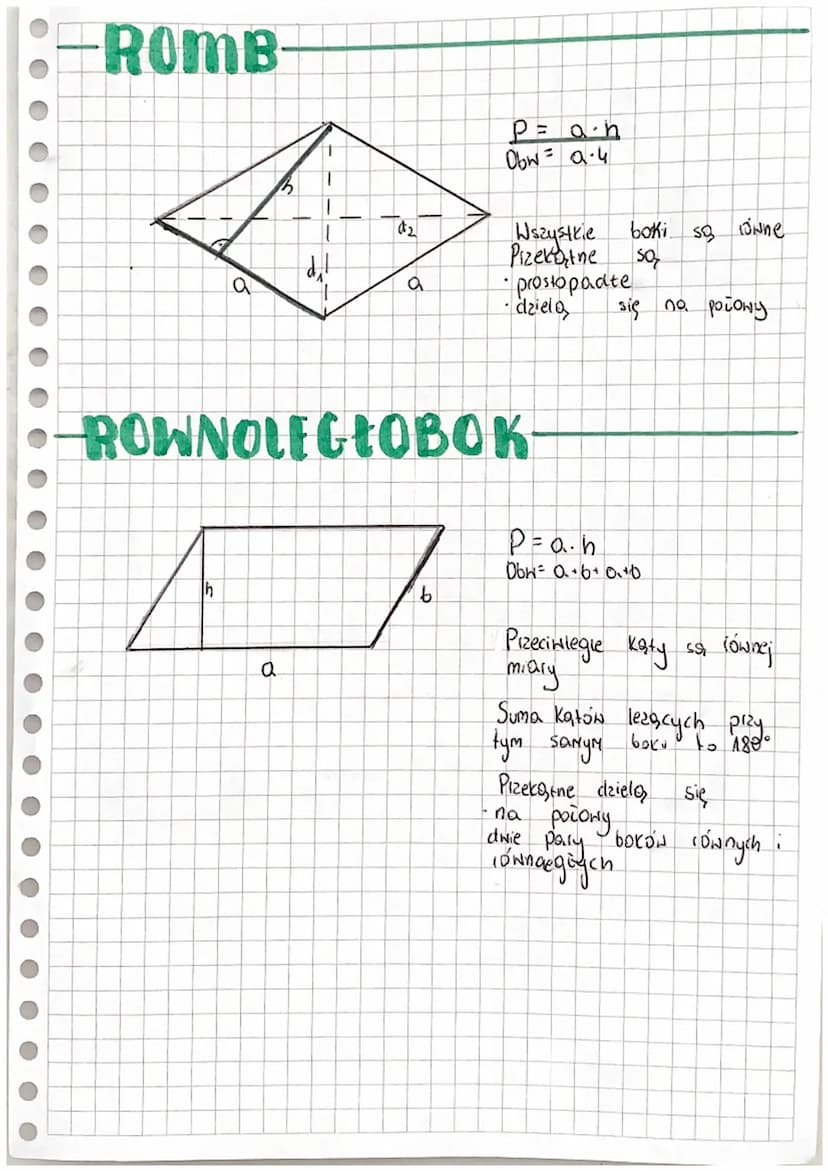 ROMB
P = a·h
Obw = a·4
h
d₂
d₁
a
a
Wszystkie boki są równe
Przekątne są
· prostopadłe
· dzielą się na połowy
ROWNOLEGŁOBOK
P = a·h
Obw = a+b+a+b
h
b
a
Przeciwległe kąty są równej
miary
Suma kątów leżących przy
tym samym boku to 180°
Przekątne dzielą się
· na połowy
dwie pary boków równych i